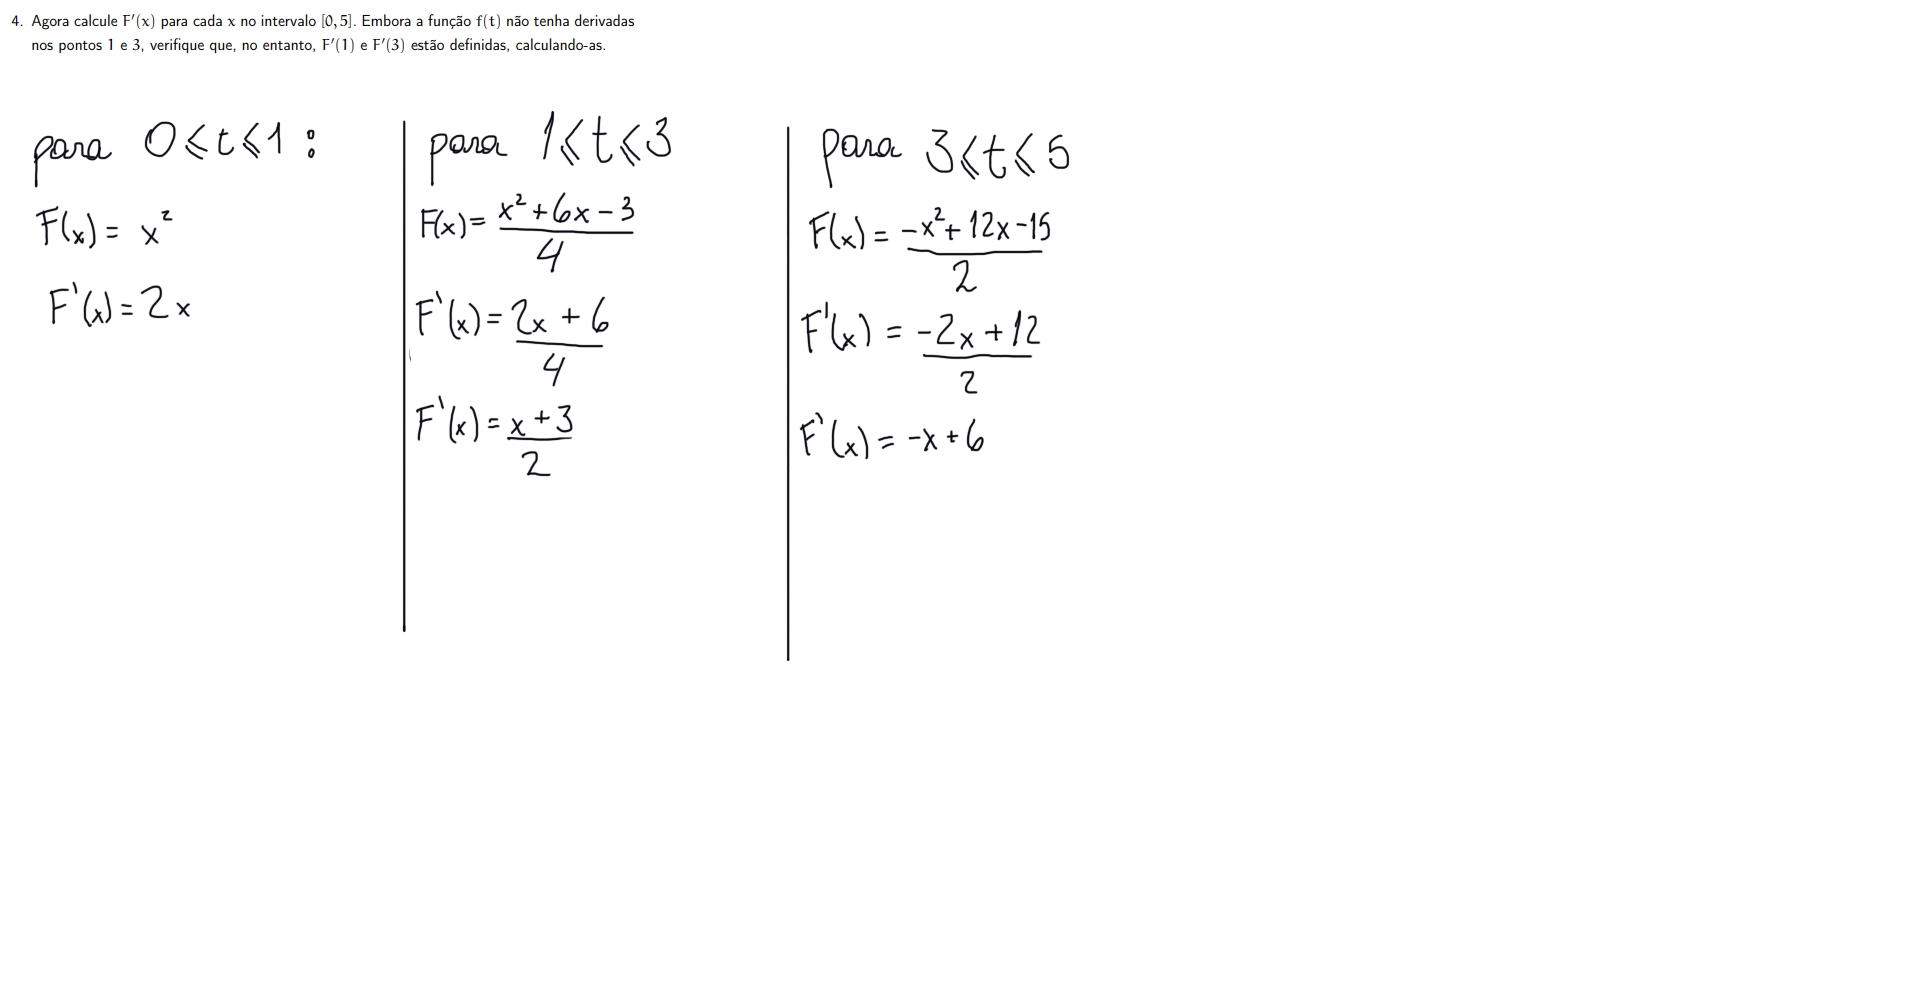 4. Agora calcule F′(x) para cada x no intervalo [0, 5]. Embora a função f(t) não tenha derivadas
nos pontos 1 e 3, verifique que, no entanto, F′(1) e F′(3) estão definidas, calculando-as.
para 0⩽t⩽1:
F(x) = x²
F'(x) = 2x
para 1⩽t⩽3
F(x) = x²+6x-3
4
F'(x) = 2x + 6
4
F'(x) = x+3
2
para 3⩽t⩽5
F(x) = -x²+12x-15
2
F'(x) = -2x+12
2
F'(x) = -x+6